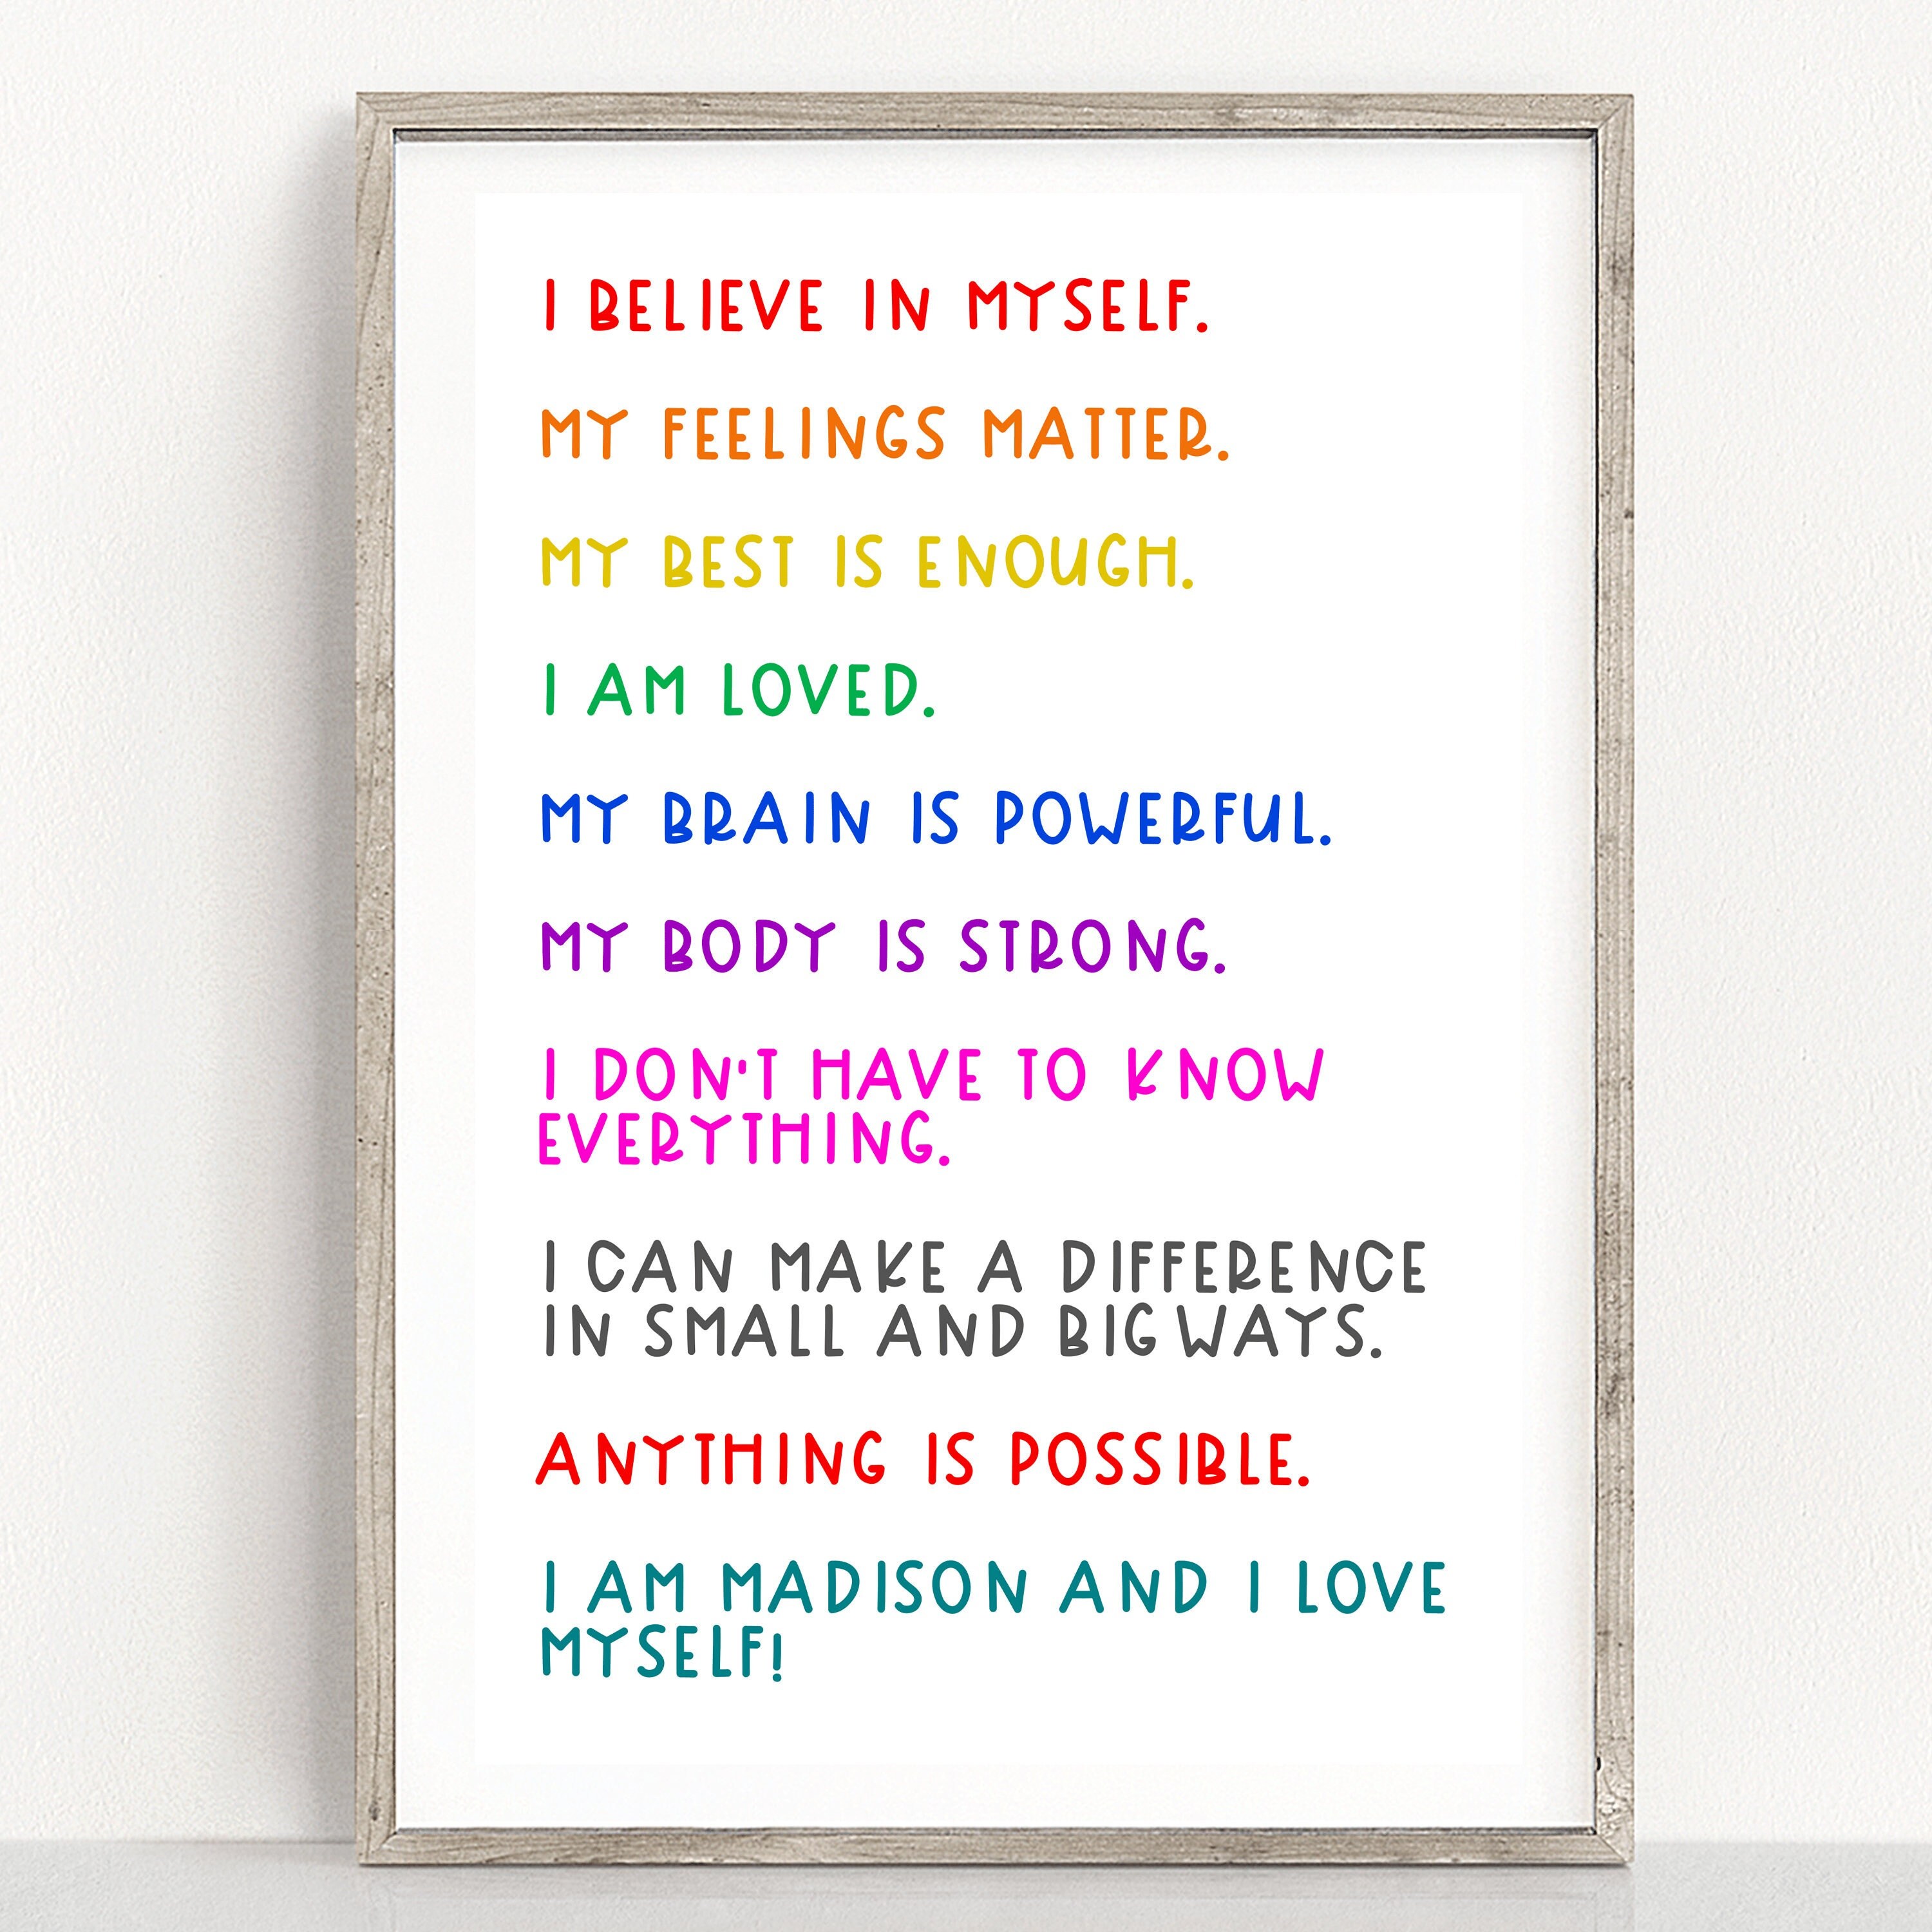 I BELIEVE IN MYSELF.
MY FEELINGS MATTER.
MY BEST IS ENOUGH.
I AM LOVED.
MY BRAIN IS POWERFUL.
MY BODY IS STRONG.
I DON'T HAVE TO KNOW
EVERYTHING.
I CAN MAKE A DIFFERENCE
IN SMALL AND BIG WAYS.
ANYTHING IS POSSIBLE.
I AM MADISON AND I LOVE
MYSELF!